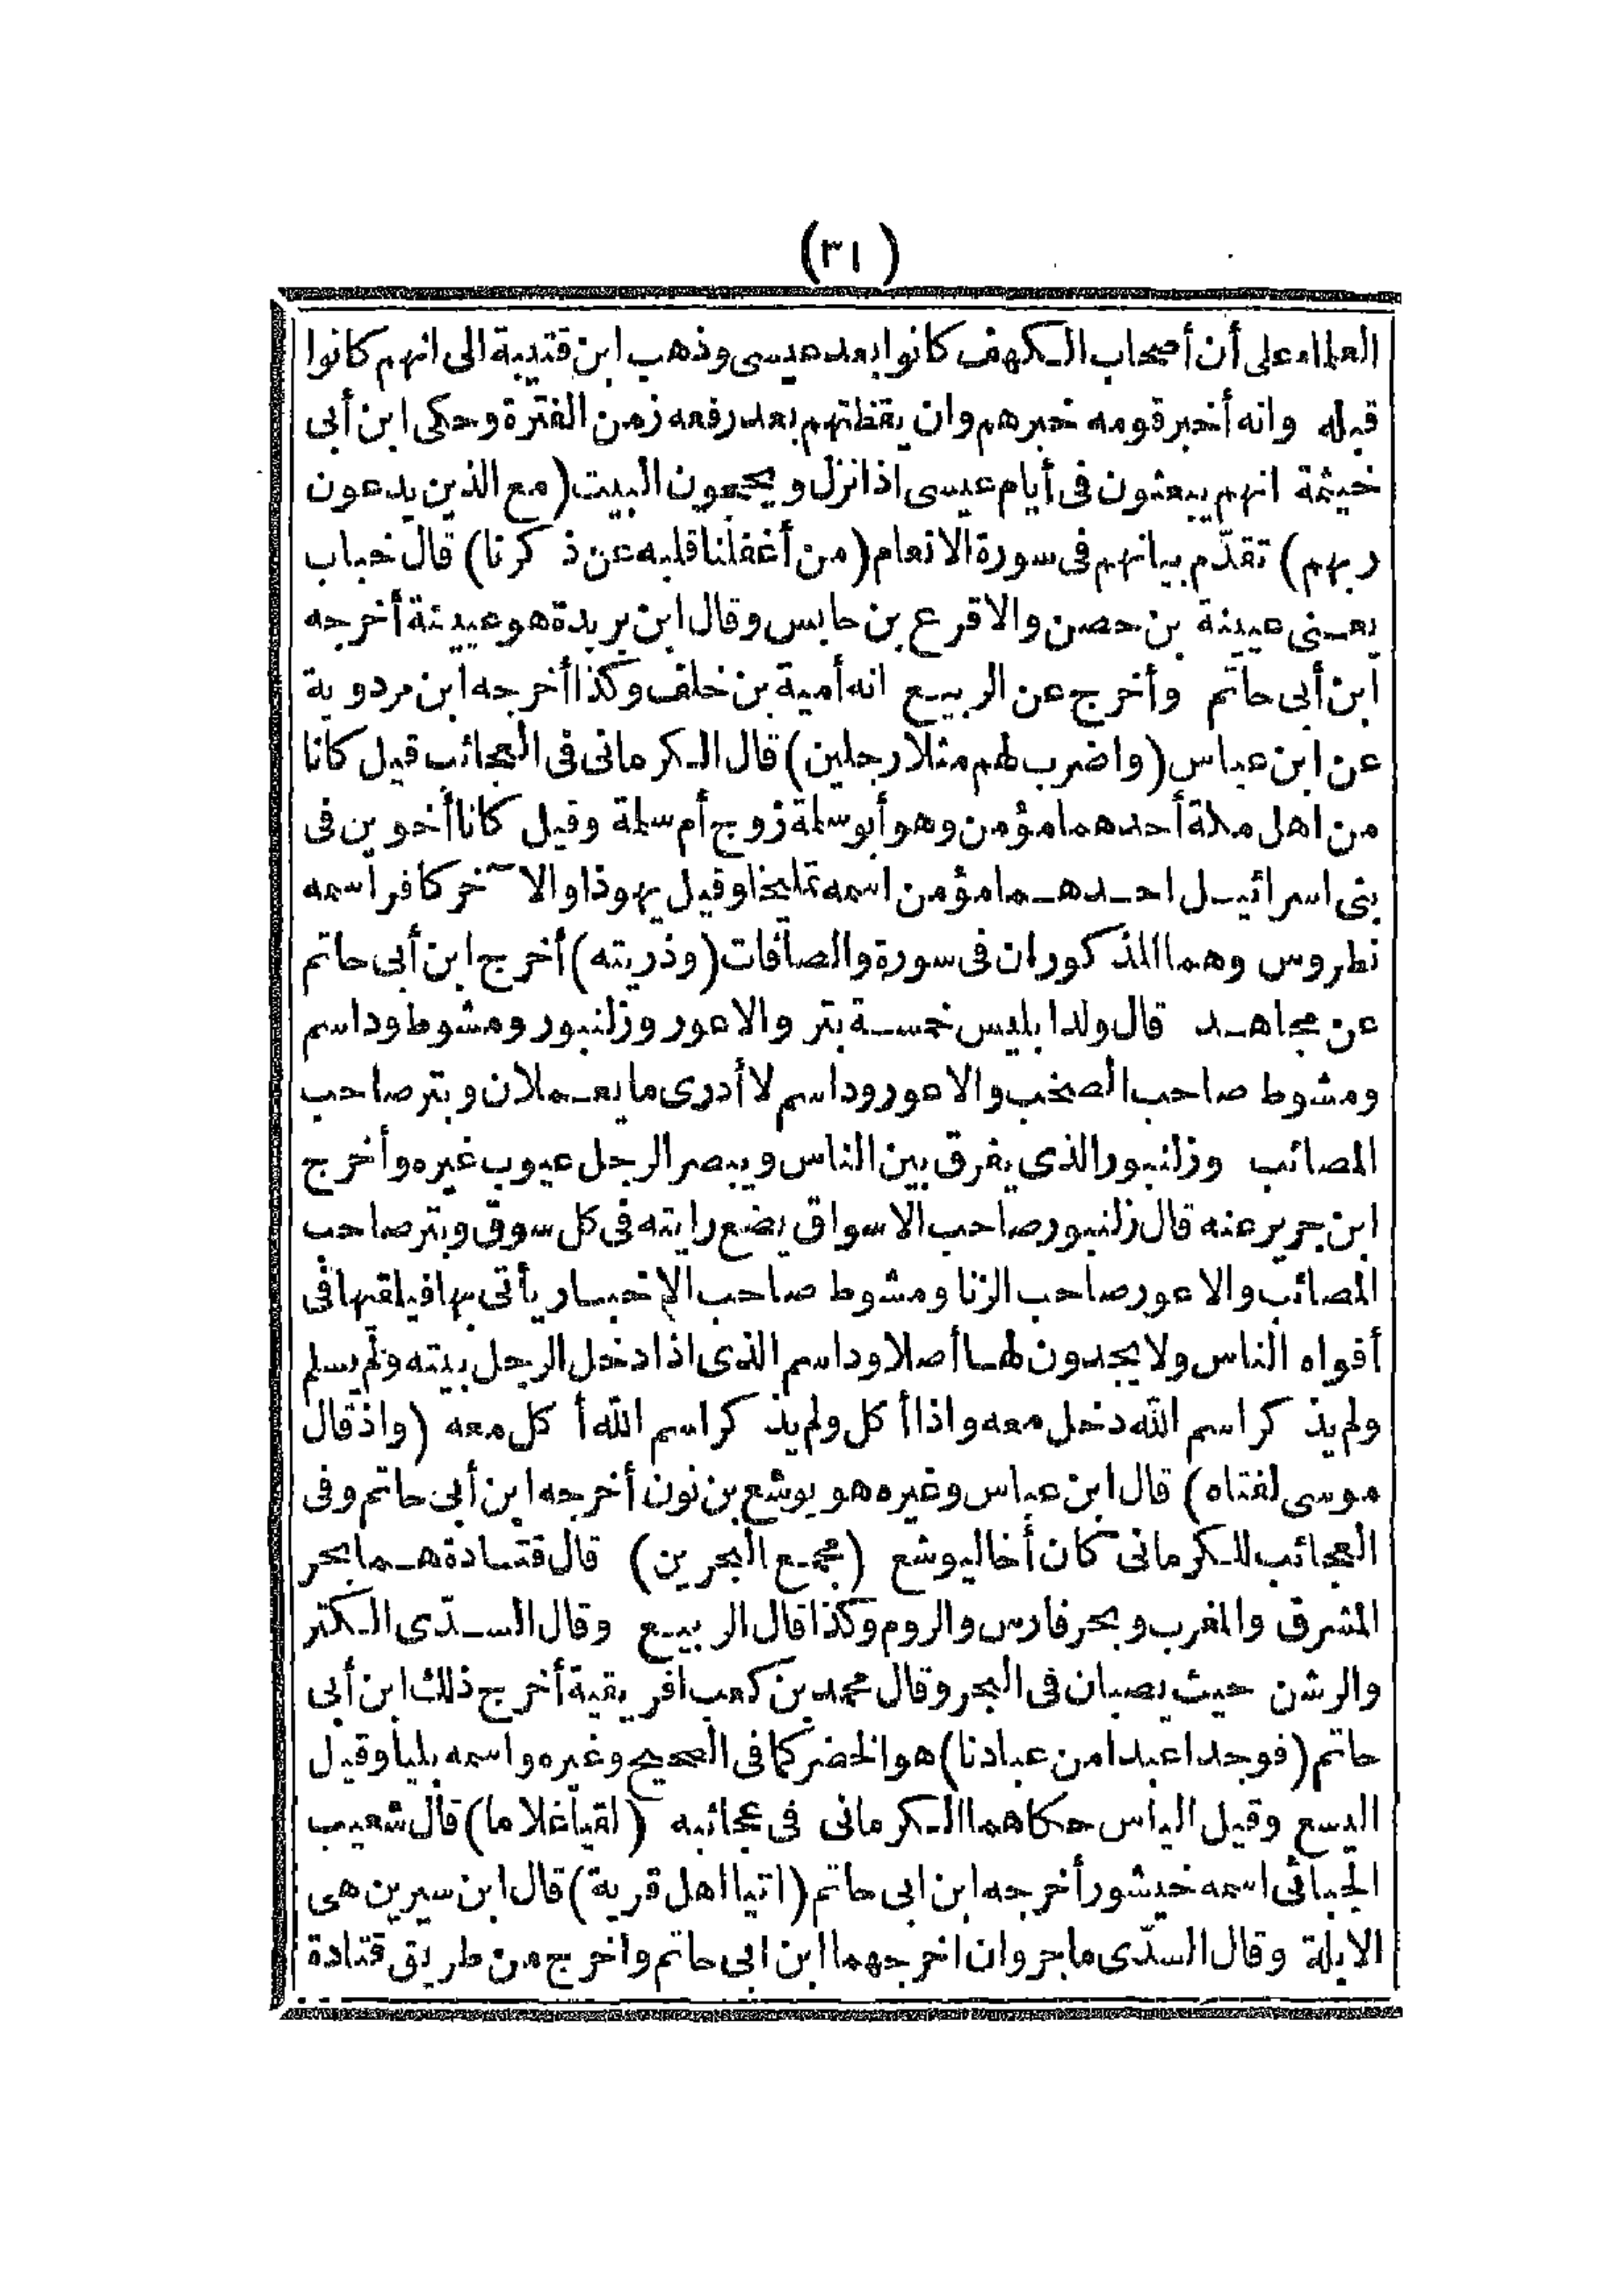 (٣١)
العلماء على أن أصحاب الكهف كانوا بعد عيسى وذهب ابن قتيبة الى انهم كانوا
قبله وانه أخبر قومه خبرهم وان يقظتهم بعد رفعه زمن الفترة وحكى ابن أبى
خيثمة انهم يبعثون فى أيام عيسى اذا نزل ويحجون البيت (مع الذين يدعون
ربهم) تقدّم بيانهم فى سورة الانعام (من أغفلنا قلبه عن ذكرنا) قال خباب
يعنى عيينة بن حصن والاقرع بن حابس وقال ابن بريدة هو عيينة أخرجه
ابن أبى حاتم وأخرج عن الربيع انه أمية بن خلف وكذا أخرجه ابن مردوية
عن ابن عباس (واضرب لهم مثلا رجلين) قال الكرمانى فى العجائب قيل كانا
من اهل مكة أحدهما مؤمن وهو أبو سلمة زوج أم سلمة وقيل كانا أخوين فى
بنى اسرائيل احدهما مؤمن اسمه تمليخا وقيل يهوذا والآخر كافر اسمه
نطروس وهما المذكوران فى سورة والصافات (وذريته) أخرج ابن أبى حاتم
عن مجاهد قال ولد ابليس خمسة بتر والاعور وزلنبور ومشوط وداسم
ومشوط صاحب الصخب والاعور وداسم لا أدرى ما يعملان وبتر صاحب
المصائب وزلنبور الذى يفرق بين الناس ويبصر الرجل عيوب غيره وأخرج
ابن جرير عنه قال زلنبور صاحب الاسواق يضع رايته فى كل سوق وبتر صاحب
المصائب والاعور صاحب الزنا ومشوط صاحب الاخبار يأتى بها فيلقها فى
أفواه الناس ولا يجدون لها أصلا وداسم الذى اذا دخل الرجل بيته ولم يسلم
ولم يذكر اسم الله دخل معه واذا أكل ولم يذكر اسم الله أكل معه (واذ قال
موسى لفتاه) قال ابن عباس وغيره هو يوشع بن نون أخرجه ابن أبى حاتم وفى
العجائب للكرمانى كان أخا ليوشع (مجمع البحرين) قال قتادة هما بحر
المشرق والمغرب وبحر فارس والروم وكذا قال الربيع وقال السدّى الكتر
والرشن حيث يصبان فى البحر وقال محمد بن كعب افريقية أخرج ذلك ابن أبى
حاتم (فوجدا عبدا من عبادنا) هو الخضر كما فى الصحيح وغيره واسمه بليا وقيل
اليسع وقيل الياس حكاهما الكرمانى فى عجائبه (لقيا غلاما) قال شعيب
الجبائى اسمه خيشور أخرجه ابن ابى حاتم (اتيا اهل قرية) قال ابن سيرين هى
الابلة وقال السدّى ماجروان اخرجهما ابن ابى حاتم واخرج من طريق قتادة